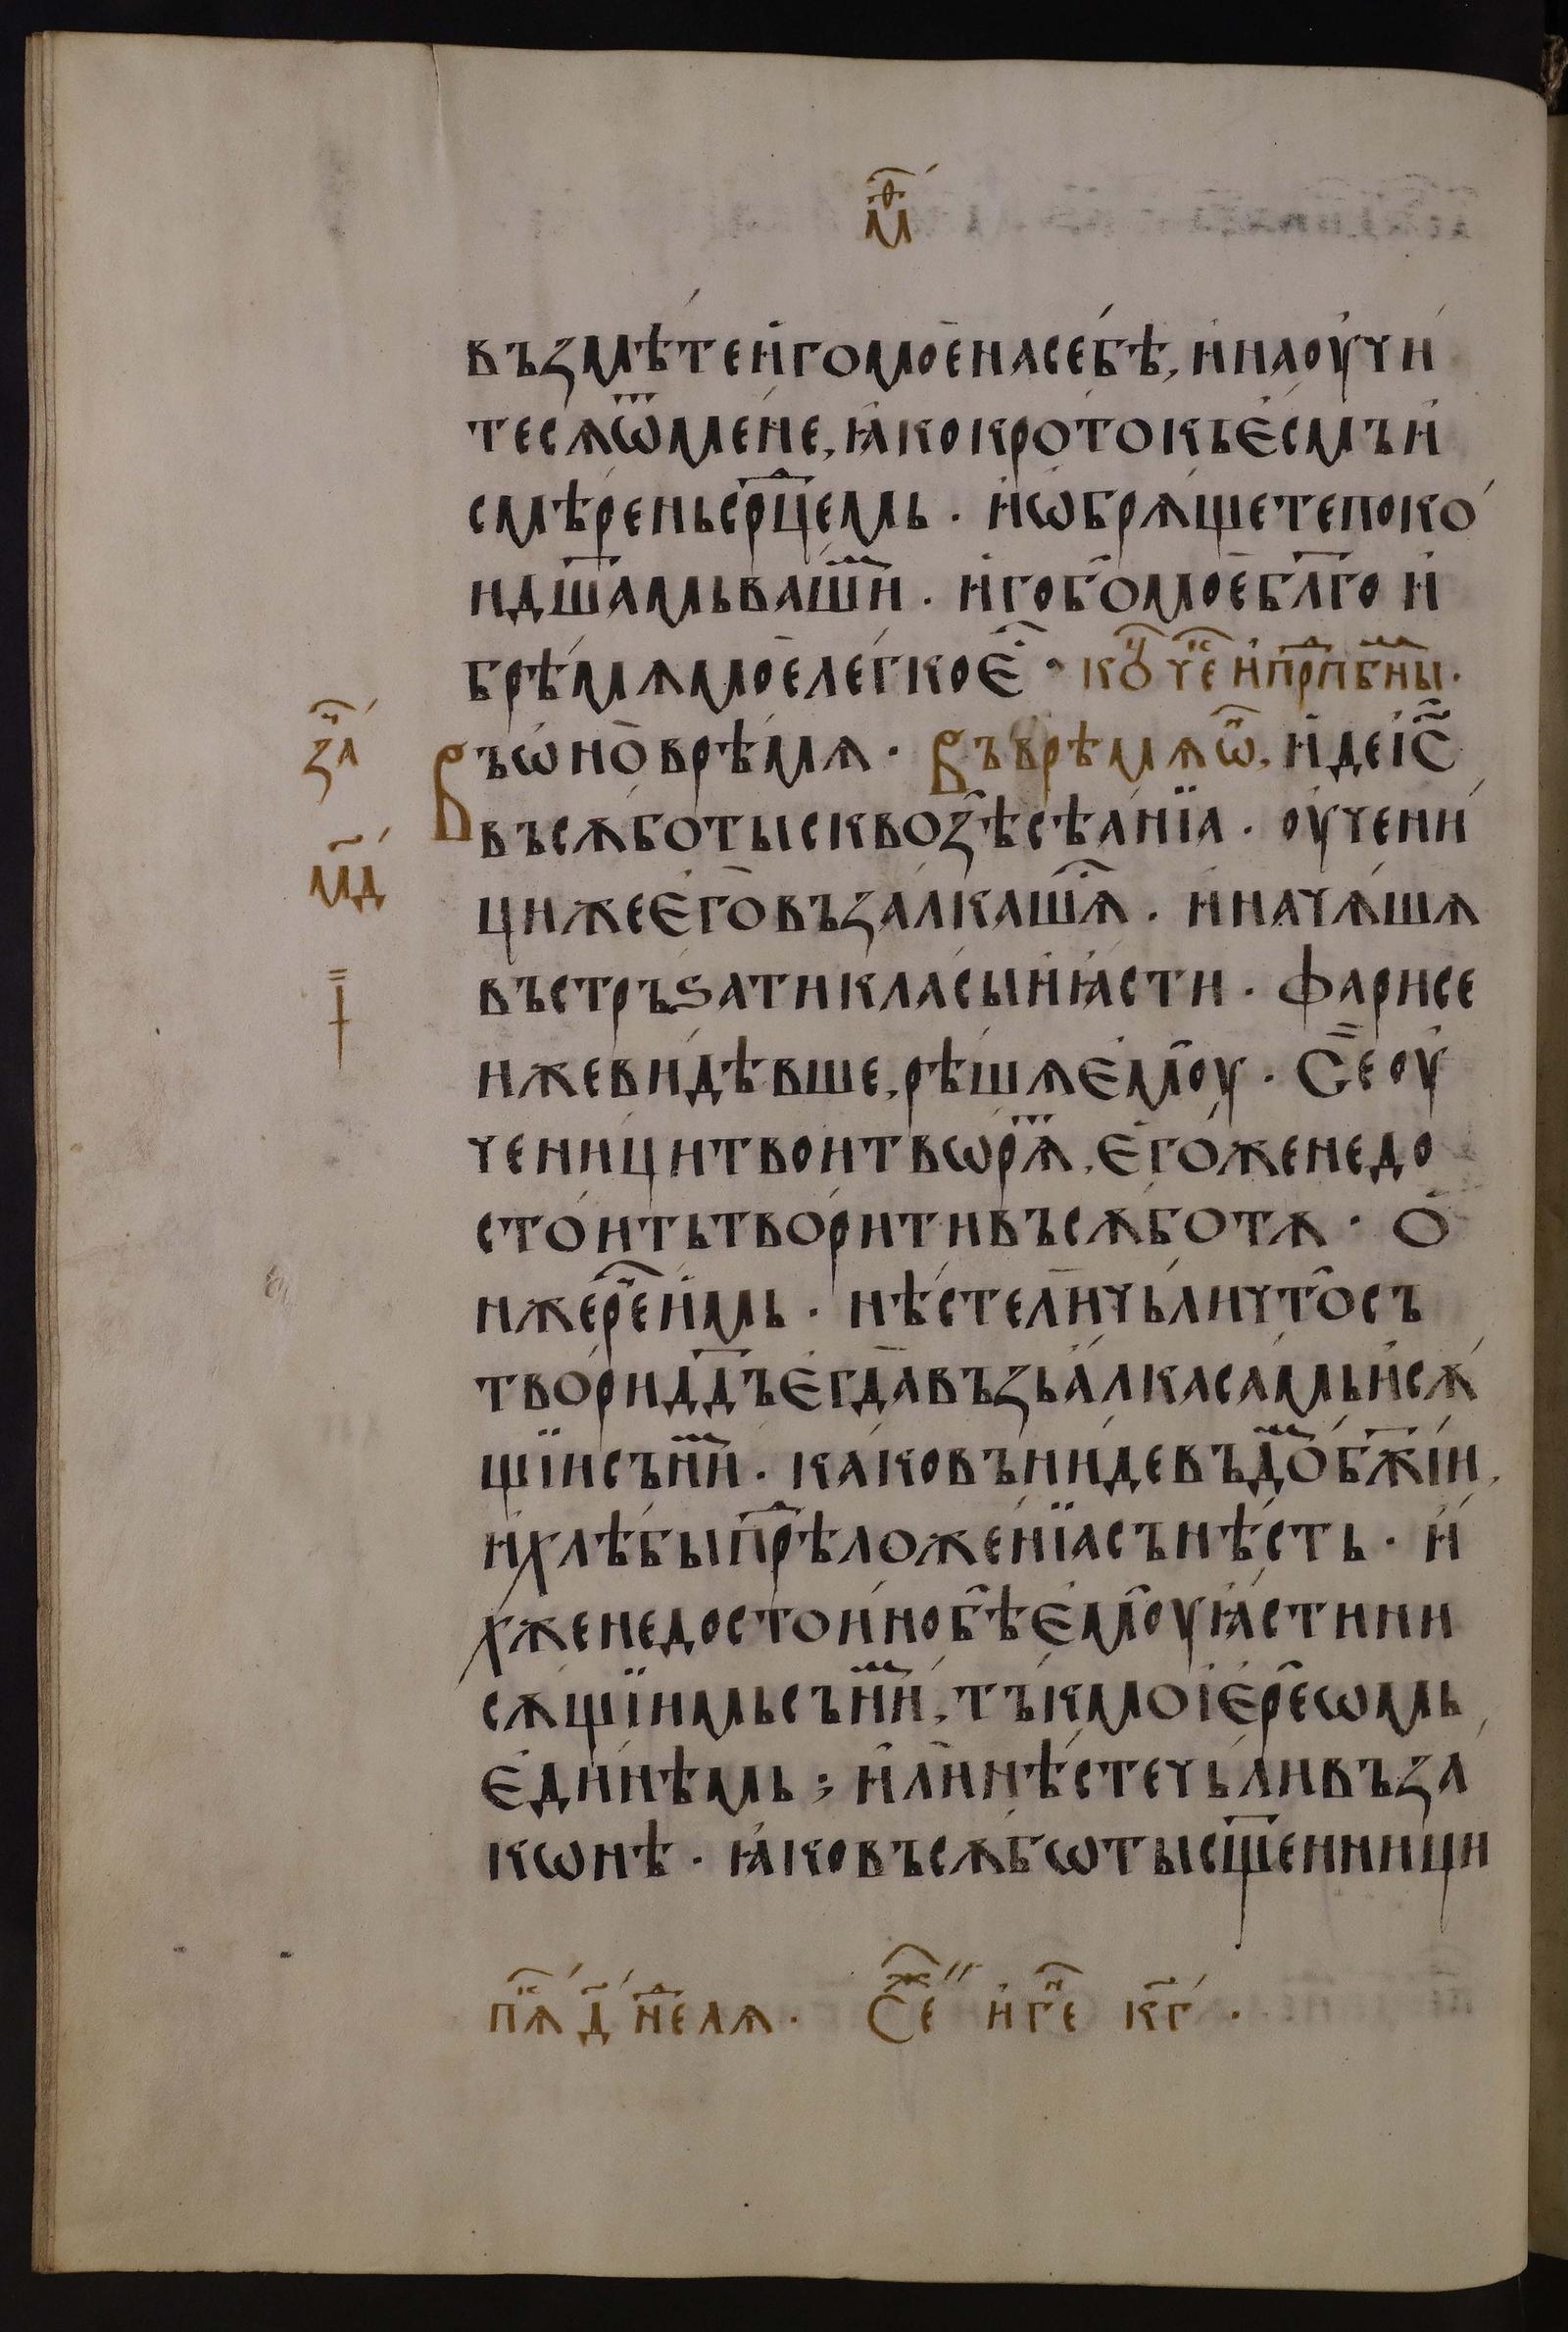 м҃ѳ
възмѣте и҆го мое на себѣ, и҆ наоучи
тесѧ ѿ мене, ꙗ҆ко кротокъ є҆смъ и҆
смѣрень срⷣцемь · и҆ ѡ҆брѧщете поко
и дш҃амь вашиⷨ · и҆го бо мое бл҃го и҆
брѣмѧ мое легко єⷭ҇ · коⷰ҇ чеⷭ҇ и҆ прⷣпбныⷨ ·
заⷱ҇
Въ ѡ҆но врѣмѧ · Въ врѣмѧ ѡ҆ⷩ, и҆де і҆с҃
въ сѫботы сквозѣ сѣанїа · оучени
м҃д
ци же є҆го възалкашѧⷭ҇ · и҆ начѧшѧ
въстръѕати класы и҆ ꙗ҆сти · фарисе
и же видѣвше, рѣшѧ є҆моу · Се оу
ченици твои творѧⷮ, є҆гоже не до
стоить творити въ сѫботѫ · Ѻ
н же реⷱ҇ и҆мь · нѣсте ли чьли что съ
твори дд҃ъ є҆гда възьалка самь и҆ сѫ
щїи съ ниⷨ · како въниде въ доⷨ бж҃їи,
и҆ хлѣбы прⷣѣложенїа сънѣсть · и҆
хже не достоино бѣ є҆моу ꙗ҆сти ни
сѫщїимь съ ниⷨ, тъкмо і҆є҆реѡмь
є҆динѣмь ; и҆ли нѣсте чьли въ за
кѡнѣ · ꙗ҆ко въ сѫбѡты сщ҃енници
пѧⷦ҇ д҃ нⷣелѧ · Сеⷤ и҆ геⷩ҇ к҃г ·